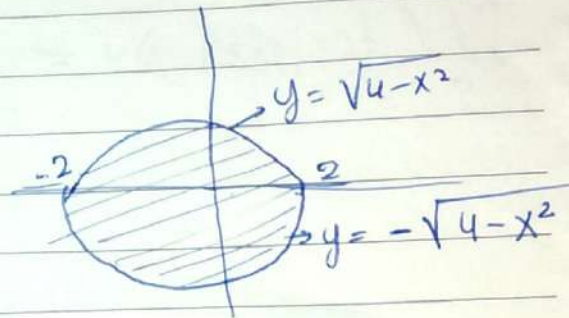 y = √4-x²
-2
2
y = -√4-x²